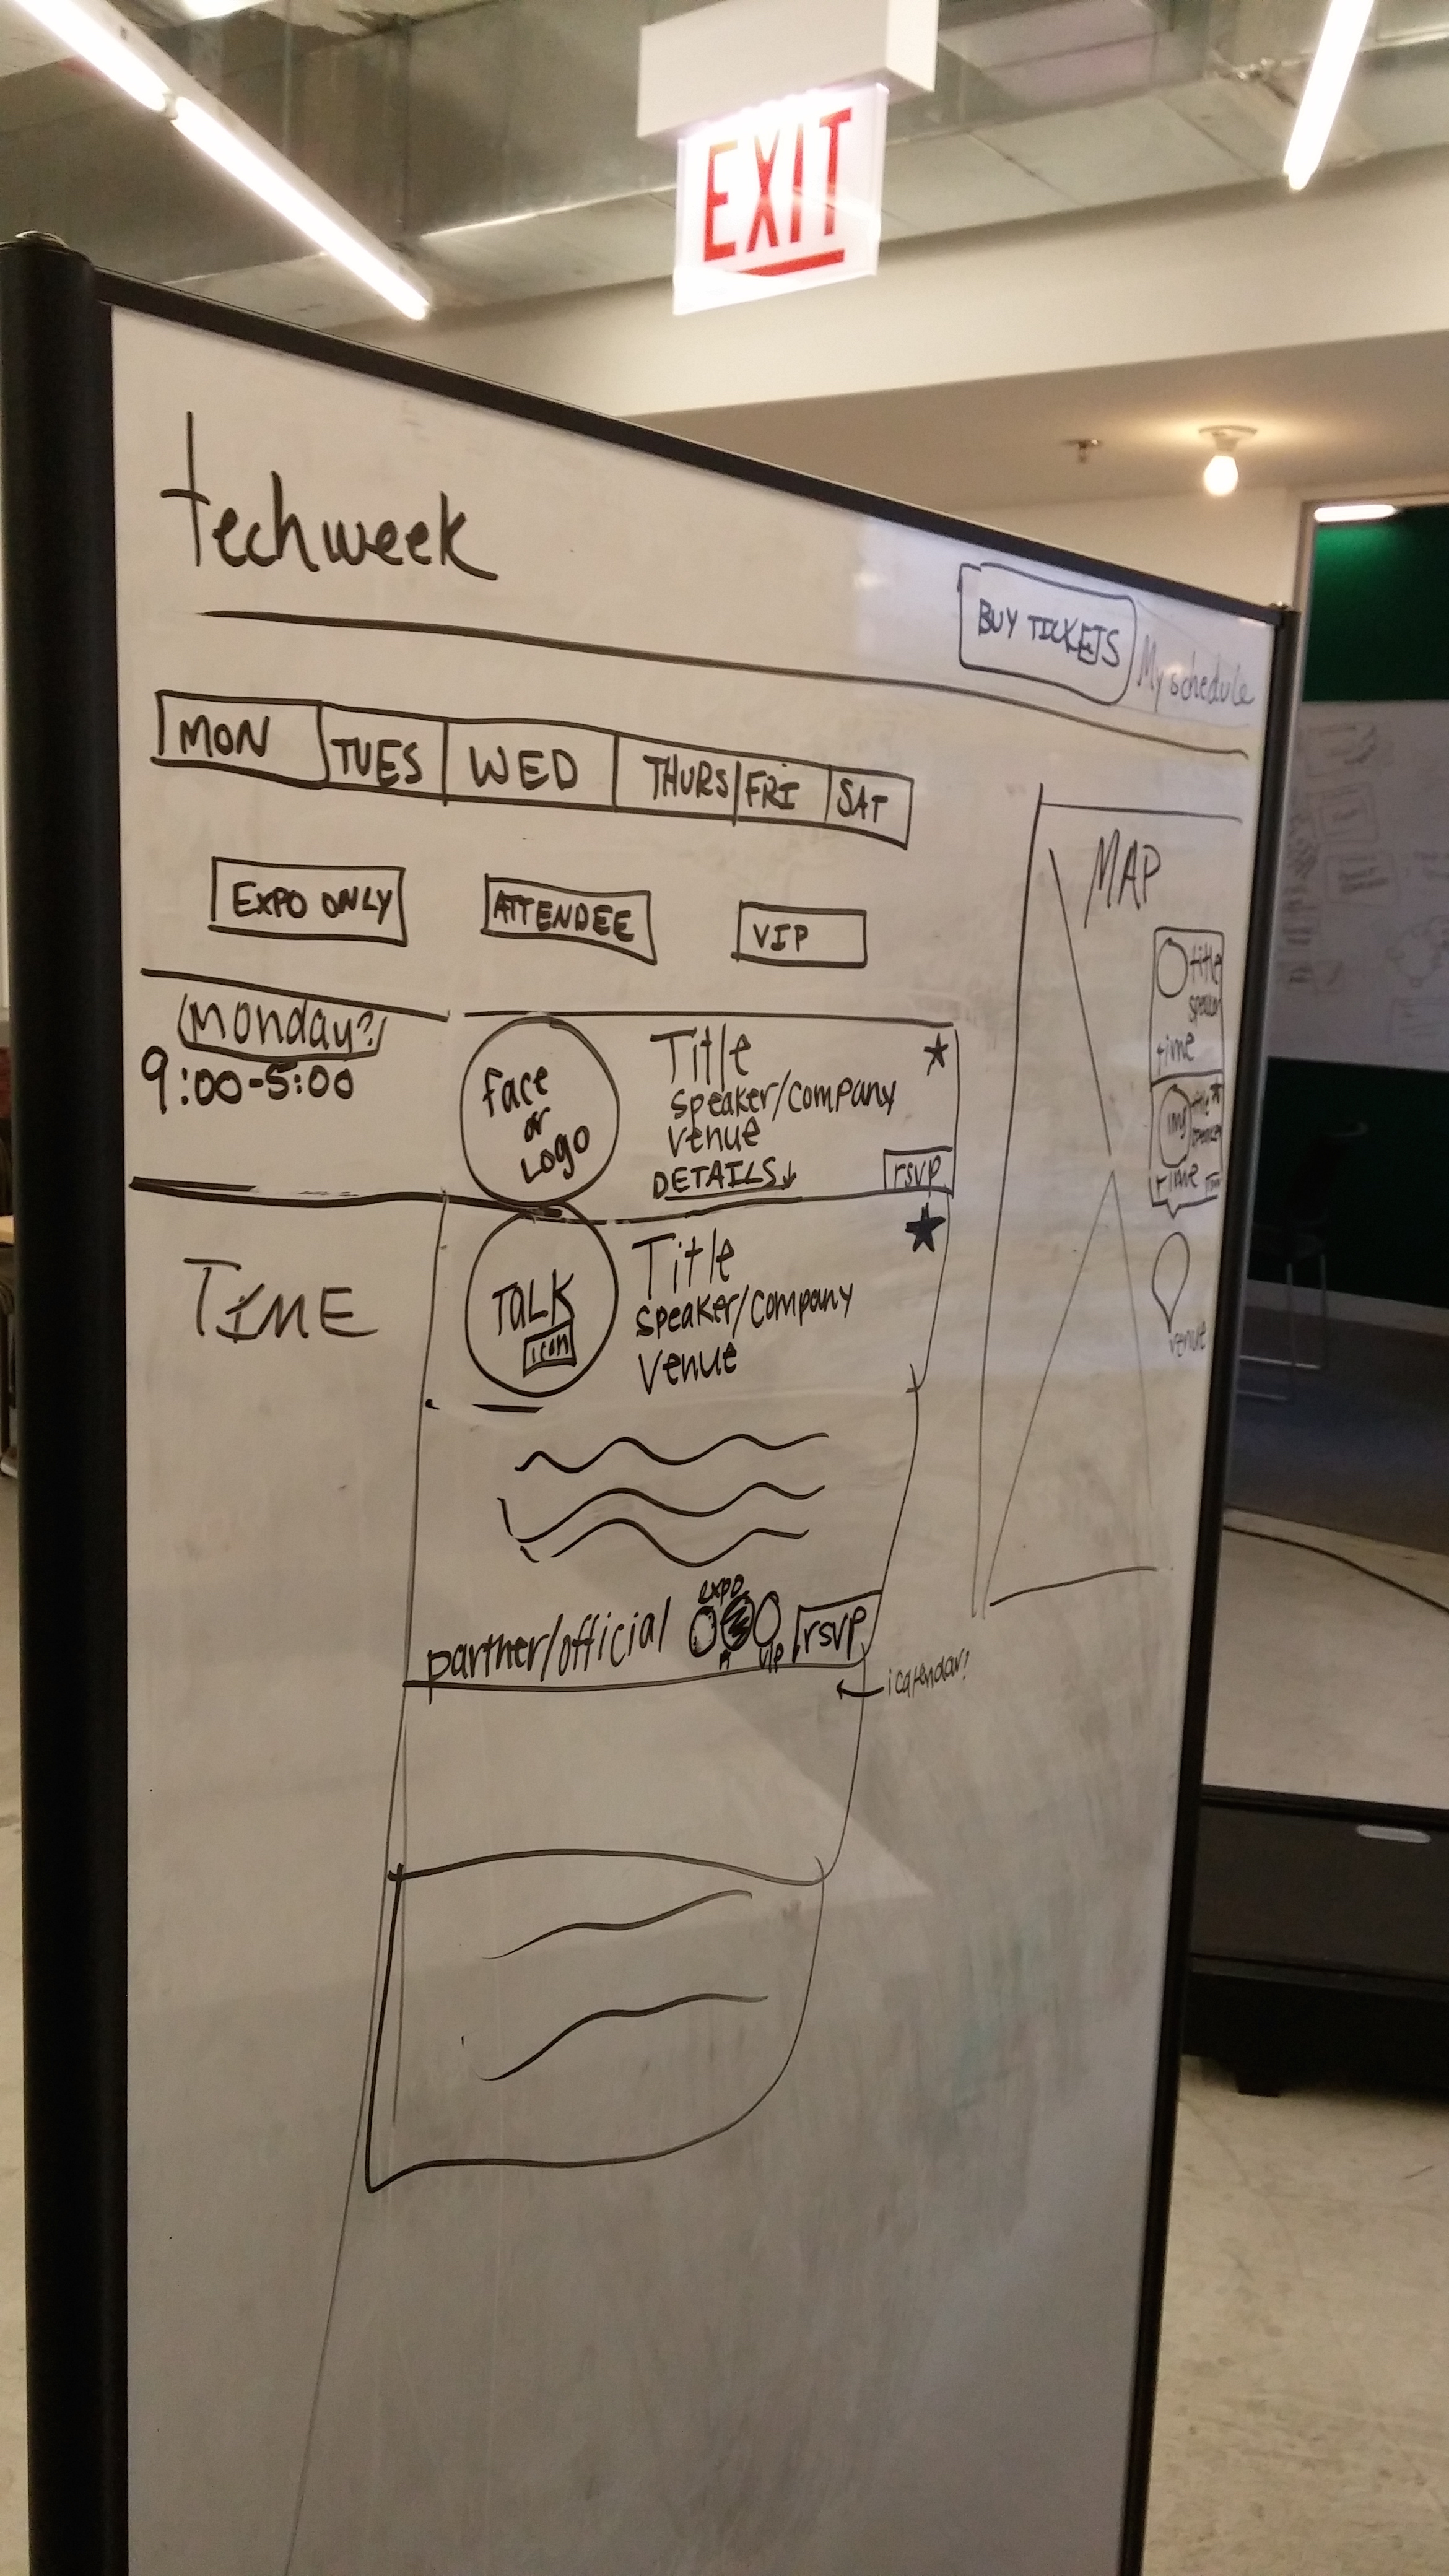 EXIT
techweek
BUY TICKETS
My schedule
MON TUES WED THURS FRI SAT
EXPO ONLY ATTENDEE VIP
(Monday?)
9:00-5:00
face
or
Logo
Title
speaker/company
venue
DETAILS↓
rsvp
TIME
TALK
icon
Title
speaker/company
venue
partner/official
expo
VIP
rsvp
← icalendar?
MAP
title
speaker
time
img
title
speaker
time
venue